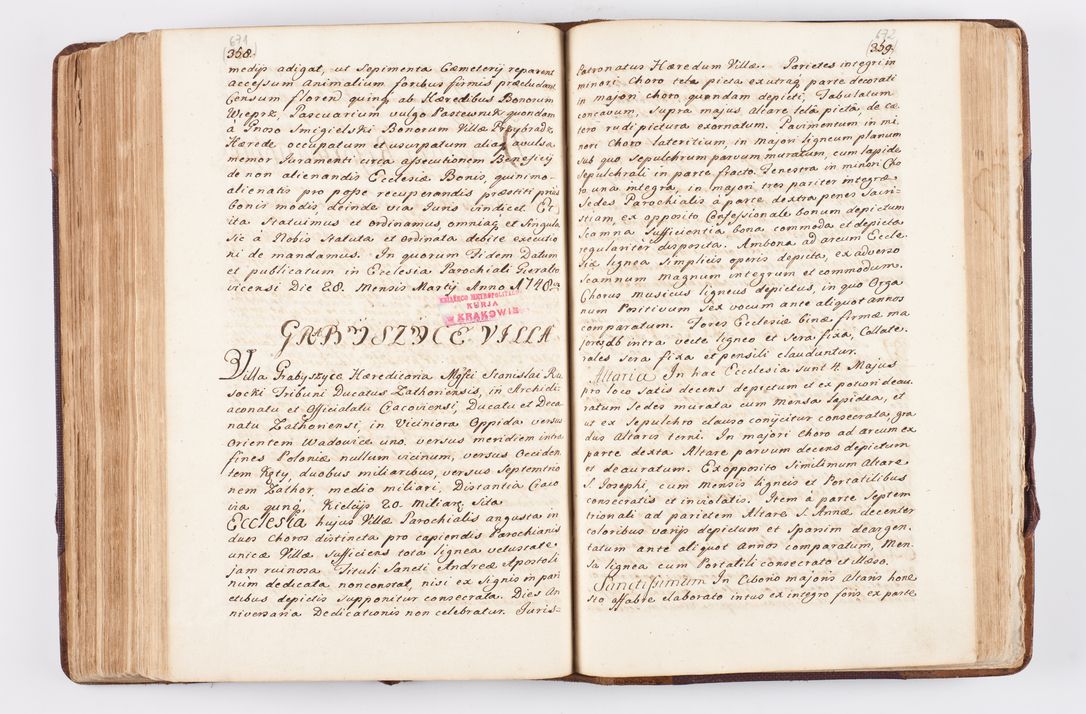 671
358.
medijs adigat, ut Sepimenta Cæmeterij reparent
accessum animalium foribus firmis præcludant
Censum floren quinq ab Hæredibus Bonorum
Wieprz, Pascuarium vulgo Pastewnik quondam
à Gnoso Smigielski Bonorum Villæ Przybradz
Hærede occupatum et usurpatum aliaq avulsa
memor Juramenti circa assecutionem Beneficij
de non alienandis Ecclesiæ Bonis, quinimo
alienatis pro posse recuperandis præstiti prius
bonis modis, deinde via Juris vindicet. Et
ita Statuimus et ordinamus, omniaq et Singula
Sic à Nobis Statuta et ordinata debitè executio
ni de mandamus. In quorum Fidem Datum
et publicatum in Ecclesia Parochiali Gieralto
vicensi Die 28. Mensis Martij Anno 1748
KSIĄŻĘCO METROPOLITALNA
KURJA
W KRAKOWIE
GRABYSZYCE VILLA
Villa Grabyszyce Hæreditaria Mgfci Stanislai Ru
socki Tribuni Ducatus Zathoriensis, in Archidi
aconatu et Officialatu Cracoviensi, Ducatu et Deca
natu Zathoriensi, in Viciniora Oppida versus
Orientem Wadowice uno, versus meridiem intra
fines Poloniæ nullum vicinum, versus Occiden
tem Kęty, duobus miliaribus, versus Septemtrio
nem Zathor, medio miliari, Distantia Craco
via quinq, Kielcijs 20. Miliarz Sita.
Ecclesia hujus Villæ Parochialis angusta in
duos Choros distincta pro capiendis Parochianis
unicæ Villæ Sufficiens tota lignea vetustate
jam ruinosa Tituli Sancti Andreæ Apostoli
num dedicata nonconstat, nisi ex Signis in pari
etibus depictis Supponitur consecrata. Dies An
niversaria Dedicationis non celebratur. Juris=
672
359.
Patronatus Hæredum Villæ. Parietes integri in
minori Choro tela picta ex utraq parte decorati
in majori choro quondam depicti, Tabulatum
concavum, Supra majus altare tela picta, de cæ
tero rudi pictura exornatum. Pavimentum in mi
nori Choro lateritium, in majori ligneum planum
Sub quo Sepulchrum parvum muratum, cum lapide
Sepulchrali in parte fracto. Fenestra in minori Cho
ro una integra, in majori tres pariter integræ
Sedes Parochialis à parte dextra penes Sacri
stiam, ex opposito Confessionale bonum depictum
Scamna Sufficientia bona commoda et depicta
regulariter disposita. Ambona ad arcum Eccle
siæ lignea Simplicis operis depicta, ex adverso
Scamnum magnum integrum et commodum.
Chorus musicus ligneus depictus, in quo Orga
num Positivum Sex vocum ante aliquot annos
comparatum. Fores Ecclesiæ binæ firmæ ma
jores db intra vecte ligneo et Sera fixa, Collate
rales Sera fixa et pensili clauduntur.
Altaria In hac Ecclesia Sunt 4. Majus
pro loco Satis decens depictum et ex potiori deau
ratum Sedes murata cum Mensa lapidea, et
ut ex Sepulchro clauso conijcitur consecrata, gra
dus Altaris terni. In majori Choro ad arcum ex
parte dexta Altare parvum decens depictum
et deauratum. Exopposito Similimum Altare
S. Josephi, cum mensis ligneis et Portatilibus
consecratis et inviolatis. Item à parte Septem
trionali ad parietem Altare S. Annæ decenter
coloribus varijs depictum et Sparsim deargen
tatum ante aliquot Annos comparatum, Men
sa lignea cum Portatili consecrato et illæso.
Sanctissimum In Ciborio majoris Altaris hone
sto affabre elaborato intus ex integro foris ex parte